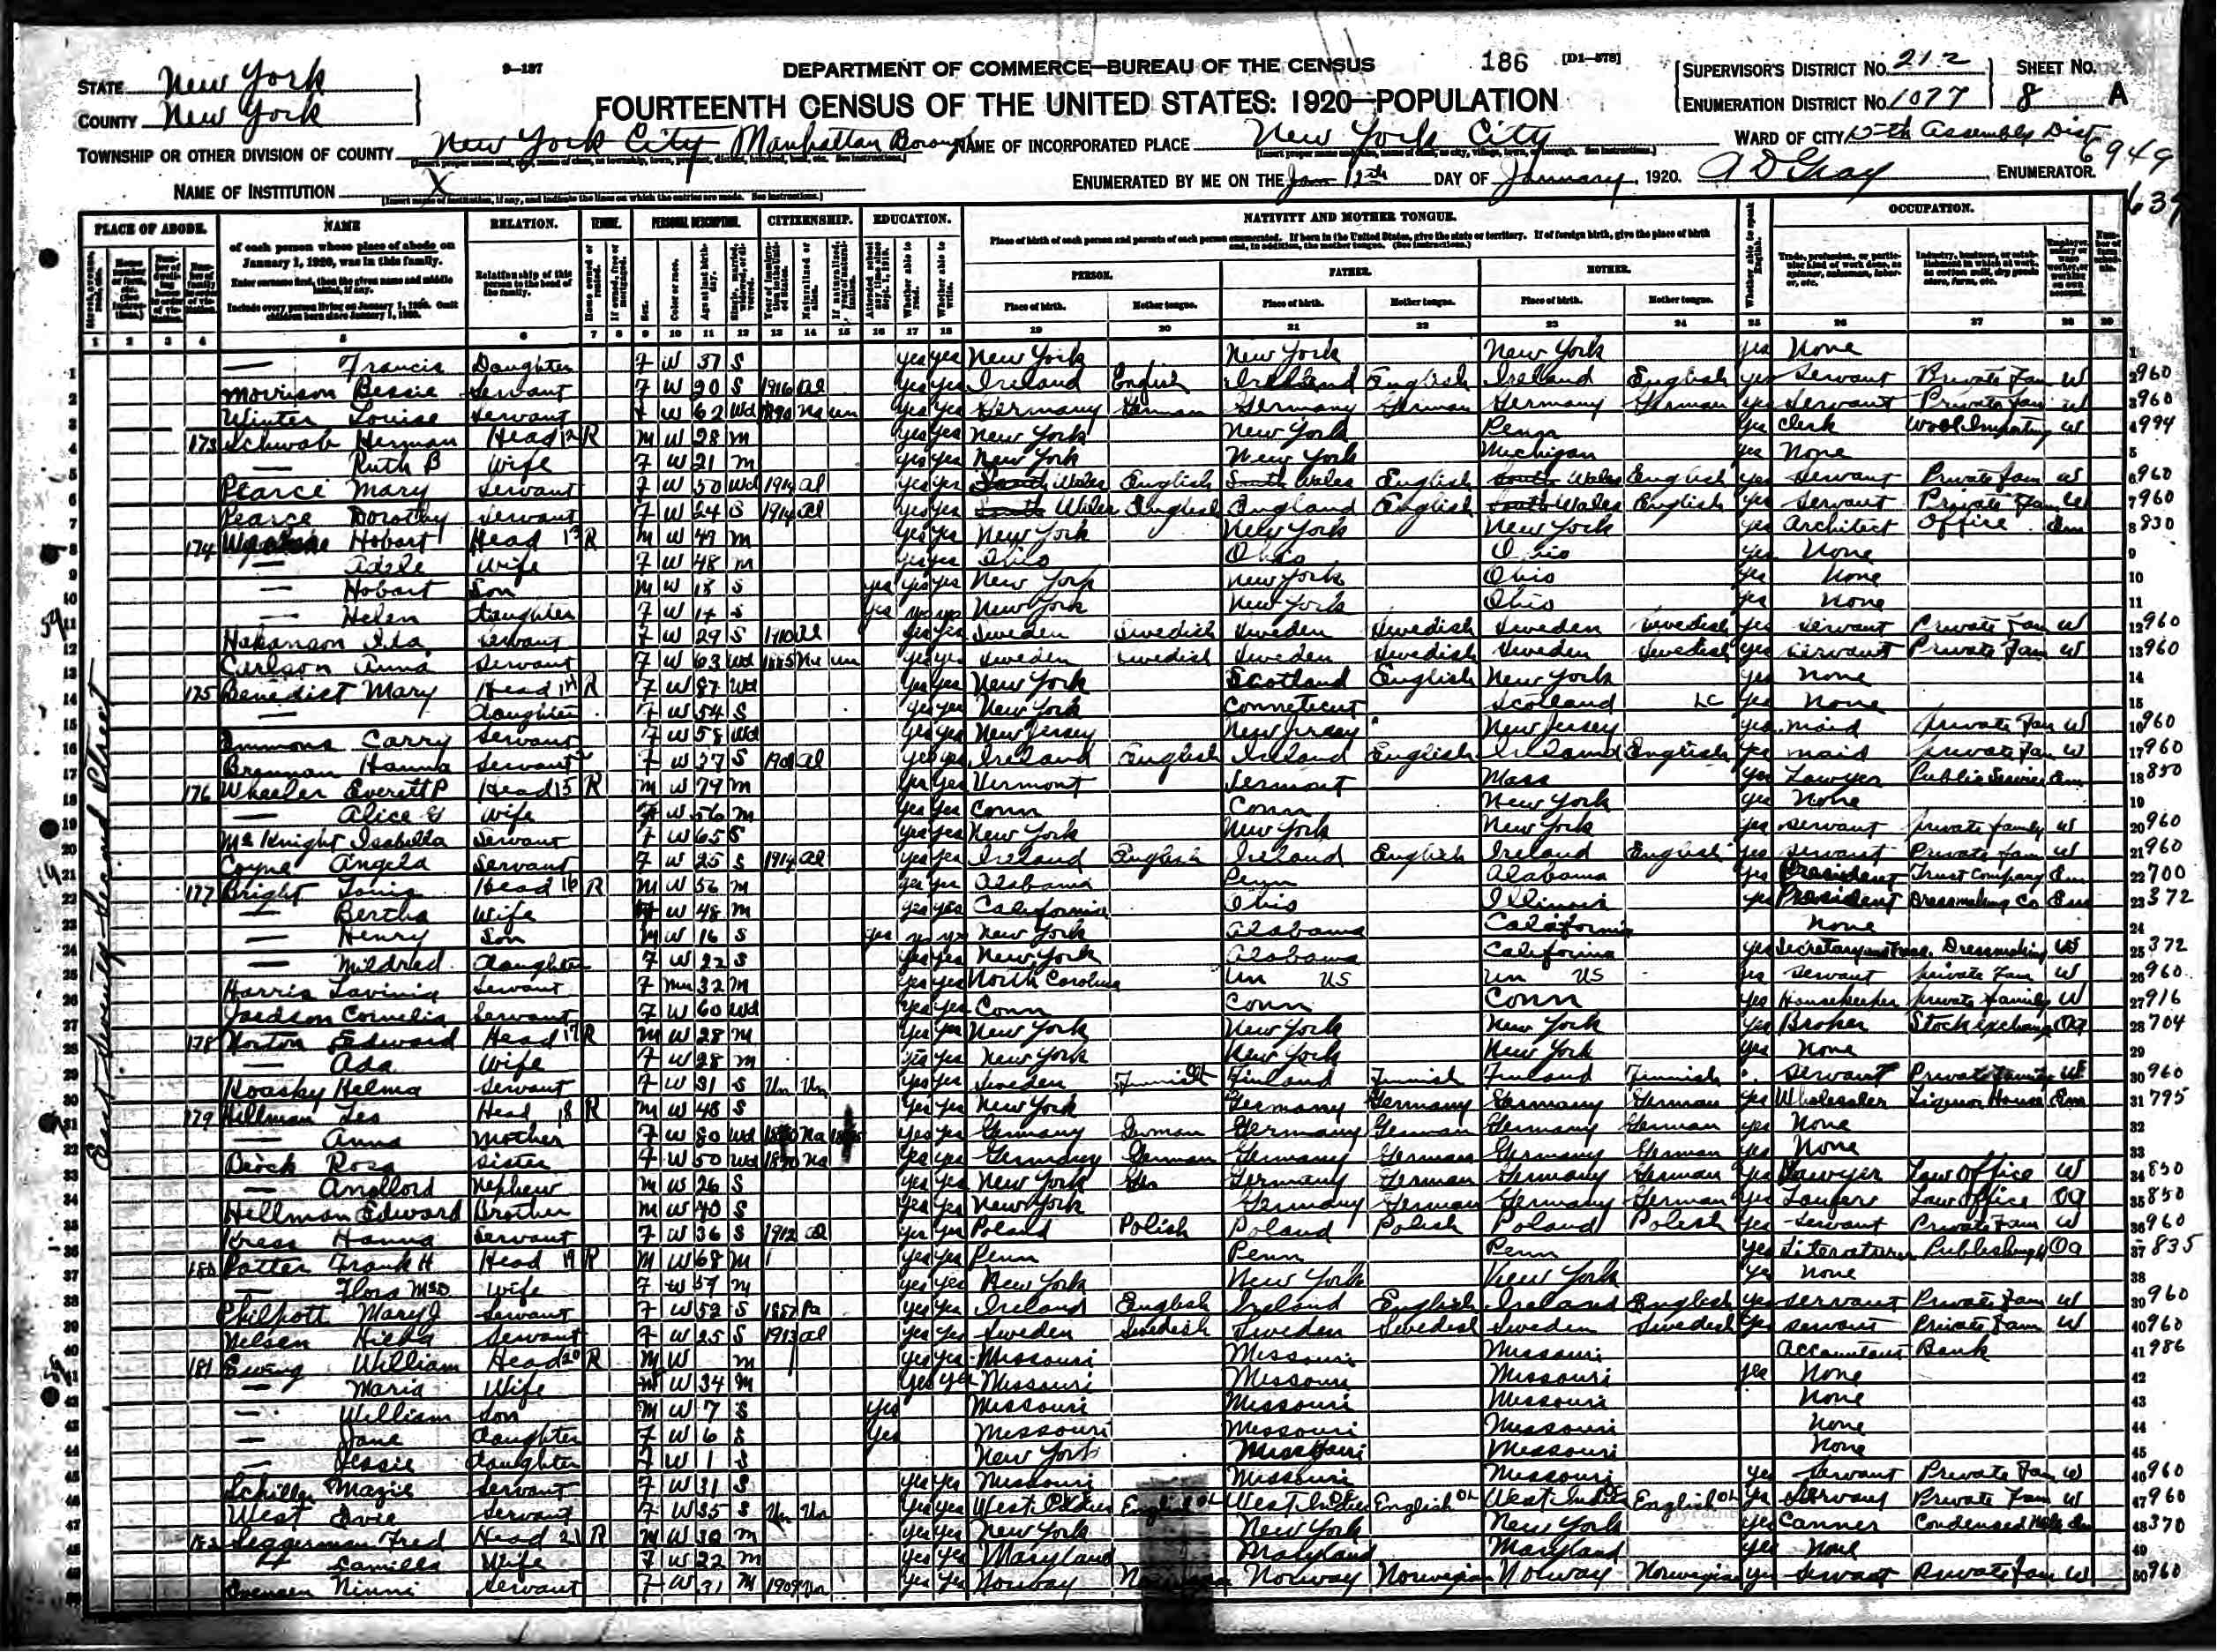 9-137
DEPARTMENT OF COMMERCE—BUREAU OF THE CENSUS
186 [D1-578]
FOURTEENTH CENSUS OF THE UNITED STATES: 1920—POPULATION
STATE New York
COUNTY New York
SUPERVISOR'S DISTRICT No. 212
ENUMERATION DISTRICT No. 1077
SHEET No. 8 A
TOWNSHIP OR OTHER DIVISION OF COUNTY New York City Manhattan Borough
NAME OF INCORPORATED PLACE New York City
WARD OF CITY 15th Assembly Dist
6949
NAME OF INSTITUTION X
ENUMERATED BY ME ON THE Jan 12th DAY OF January, 1920. A D Gray, ENUMERATOR.
639
PLACE OF ABODE. NAME RELATION. TENURE. PERSONAL DESCRIPTION. CITIZENSHIP. EDUCATION. NATIVITY AND MOTHER TONGUE. OCCUPATION.
of each person whose place of abode on January 1, 1920, was in this family.
Enter surname first, then the given name and middle initial, if any.
Include every person living on January 1, 1920. Omit children born since January 1, 1920.
Relationship of this person to the head of the family.
Place of birth of each person and parents of each person enumerated. If born in the United States, give the state or territory. If of foreign birth, give the place of birth and, in addition, the mother tongue. (See instructions.)
PERSON. FATHER. MOTHER.
Place of birth. Mother tongue. Place of birth. Mother tongue. Place of birth. Mother tongue.
1 2 3 4 5 6 7 8 9 10 11 12 13 14 15 16 17 18 19 20 21 22 23 24 25 26 27 28 29
East Seventy-Second Street
1 — Francis Daughter F W 37 S yes yes New York New York New York yes None
2 Morrison Bessie Servant F W 20 S 1916 Al yes yes Ireland English Ireland English Ireland English yes Servant Private Fam W 960
3 Winter Louise Servant F W 62 Wd 1890 Na un yes yes Germany German Germany German Germany German yes Servant Private Fam W 960
4 173 Schwab Herman Head 12 R M W 28 M yes yes New York New York Penn yes Clerk Wool Importing W 994
5 — Ruth B Wife F W 21 M yes yes New York New York Michigan yes None
6 Pearce Mary Servant F W 50 Wd 1914 Al yes yes South Wales English South Wales English South Wales English yes Servant Private Fam W 960
7 Pearce Dorothy Servant F W 24 S 1914 Al yes yes South Wales English England English South Wales English yes Servant Private Fam W 960
8 174 Hobart Head 13 R M W 49 M yes yes New York New York New York yes Architect Office Em 830
9 — Adele Wife F W 48 M yes yes Ohio Ohio Ohio yes None
10 — Hobart Son M W 18 S yes yes yes New York New York Ohio yes None
11 — Helen Daughter F W 14 S yes yes yes New York New York Ohio yes None
12 Hakanson Ida Servant F W 29 S 1910 Al yes yes Sweden Swedish Sweden Swedish Sweden Swedish yes Servant Private Fam W 960
13 Carlson Anna Servant F W 63 Wd 1885 Na un yes yes Sweden Swedish Sweden Swedish Sweden Swedish yes Servant Private Fam W 960
14 175 Benedict Mary Head 14 R F W 87 Wd yes yes New York Scotland English New York yes None
15 — Daughter F W 54 S yes yes New York Conneticut Scotland LC yes None
16 Emmons Carry Servant F W 58 Wd yes yes New Jersey New Jersey New Jersey yes Maid Private Fam W 960
17 Brennan Hanna Servant F W 27 S Al yes yes Ireland English Ireland English Ireland English yes Maid Private Fam W 960
18 176 Wheeler Everett P Head 15 R M W 79 M yes yes Vermont Vermont Mass yes Lawyer Public Service Em 850
19 — Alice G Wife F W 56 M yes yes Conn Conn New York yes None
20 McKnight Isabella Servant F W 65 S yes yes New York New York New York yes Servant Private family W 960
21 Coyne Angela Servant F W 25 S 1914 Al yes yes Ireland English Ireland English Ireland English yes Servant Private fam W 960
22 177 Bright Louis Head 16 R M W 56 M yes yes Alabama Penn Alabama yes President Trust Company Em 700
23 — Bertha Wife F W 48 M yes yes California Ohio Illinois yes President Dressmaking Co Em 372
24 — Henry Son M W 16 S yes yes yes New York Alabama California None
25 — Mildred Daughter F W 22 S yes yes New York Alabama California yes Secretary and Treas. Dressmaking W 372
26 Harris Lavinia Servant F Mu 32 M yes yes North Carolina Un US Un US yes Servant Private Fam W 960
27 Judson Cornelia Servant F W 60 Wd yes yes Conn Conn Conn yes Housekeeper private family W 916
28 178 Norton Edward Head 17 R M W 28 M yes yes New York New York New York yes Broker Stock exchange OA 704
29 — Ada Wife F W 28 M yes yes New York New York New York yes None
30 Helma Servant F W 31 S Un Un yes yes Sweden Finnish Finland Finnish Finland Finnish Servant Private Family W 960
31 179 Hillman Leo Head 18 R M W 48 S yes yes New York Germany Germany Germany German yes Wholesaler Liquor House Em 795
32 — Anna Mother F W 80 Wd Na yes yes Germany German Germany German Germany German yes None
33 Rosa Sister F W 50 Wd 1870 Na yes yes Germany German Germany German Germany German yes None
34 — Nephew M W 26 S yes yes New York Ger Germany German Germany German yes Lawyer Law Office W 850
35 Hillman Edward Brother M W 40 S yes yes New York Germany German Germany German yes Law Office OA 850
36 Kress Hanna Servant F W 36 S 1912 Al yes yes Poland Polish Poland Polish Poland Polish yes Servant Private Fam W 960
37 180 Potter Frank H Head 19 R M W 68 M yes yes Penn Penn Penn yes Literature Publishing OA 835
38 — Flora McD Wife F W 59 M yes yes New York New York New York yes None
39 Philpott Mary J Servant F W 52 S Pa yes yes Ireland English Ireland English Ireland English yes Servant Private Fam W 960
40 Nelsen Hilda Servant F W 25 S 1913 Al yes yes Sweden Swedish Sweden Swedish Sweden Swedish yes Servant Private Fam W 960
41 181 Ewing William Head 20 R M W M yes yes Missouri Missouri Missouri Accountant Bank 986
42 — Maria Wife W 34 M yes yes Missouri Missouri Missouri yes None
43 — William Son M W 7 S yes Missouri Missouri Missouri None
44 — Jane Daughter F W 6 S yes Missouri Missouri Missouri None
45 — Jessie Daughter F W 1 S New York Missouri Missouri None
46 Schiller Mazie Servant F W 31 S yes yes Missouri Missouri Missouri yes Servant Private Fam W 960
47 West Servant F W 35 S Un Un yes yes West Indies English OL West Indies English OL West Indies English OL yes Servant Private Fam W 960
48 182 Seggerman Fred Head 21 R M W 30 M yes yes New York New York New York yes Canner Condensed Milk Em 370
49 — Camilla Wife F W 22 M yes yes Maryland Maryland Maryland yes None
50 Ninni Servant F W 31 M 1909 Un yes yes Norway Norway Norwegian Norway Norwegian yes Servant Private Fam W 960